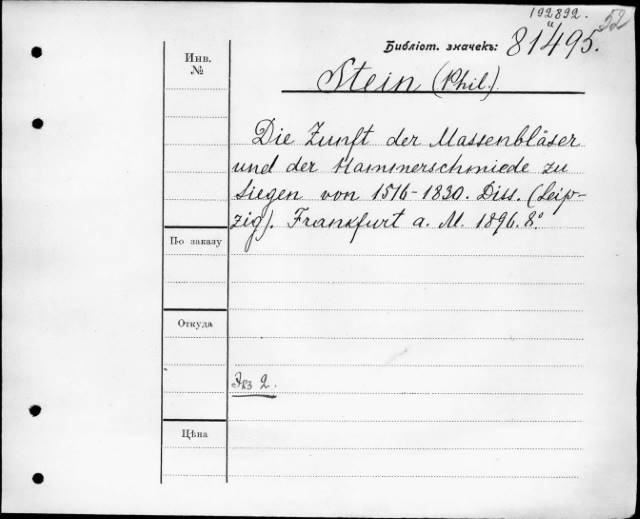 192892. 52
и
Библіот. значекъ: 81495.
Инв.
№
Stein (Phil.)
Die Zunft der Massenbläser
und der Hammerschmiede zu
Siegen von 1516-1830. Diss. (Leip-
zig). Frankfurt a. M. 1896. 8°.
По заказу
Откуда
Экз 2.
Цѣна